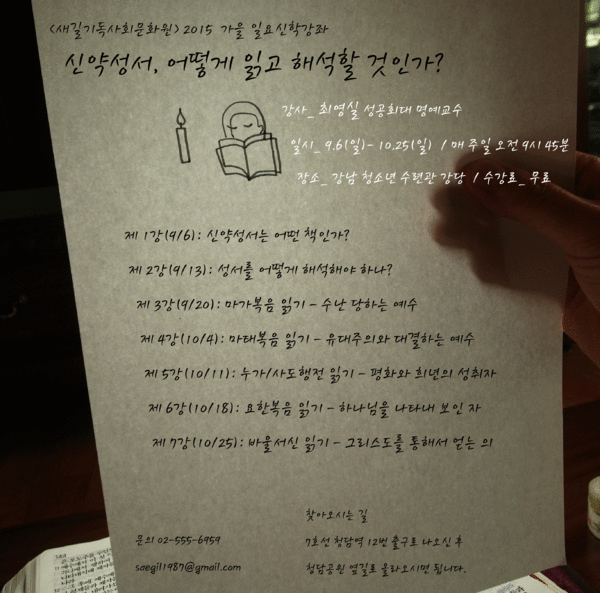 <새길기독사회문화원> 2015 가을 일요신학강좌
신약성서, 어떻게 읽고 해석할 것인가?
강사_ 최영실 성공회대 명예교수
일시_ 9.6(일)- 10.25(일) / 매 주일 오전 9시 45분
장소_ 강남 청소년 수련관 강당 / 수강료_ 무료
제 1강(9/6): 신약성서는 어떤 책인가?
제 2강(9/13): 성서를 어떻게 해석해야 하나?
제 3강(9/20): 마가복음 읽기 - 수난 당하는 예수
제 4강(10/4): 마태복음 읽기 - 유대주의와 대결하는 예수
제 5강(10/11): 누가/사도행전 읽기 - 평화와 희년의 성취자
제 6강(10/18): 요한복음 읽기 - 하나님을 나타내 보인 자
제 7강(10/25): 바울서신 읽기 - 그리스도를 통해서 얻는 의
찾아오시는 길
문의 02-555-6959
7호선 청담역 12번 출구로 나오신 후
saegil1987@gmail.com
청담공원 옆길로 올라오시면 됩니다.